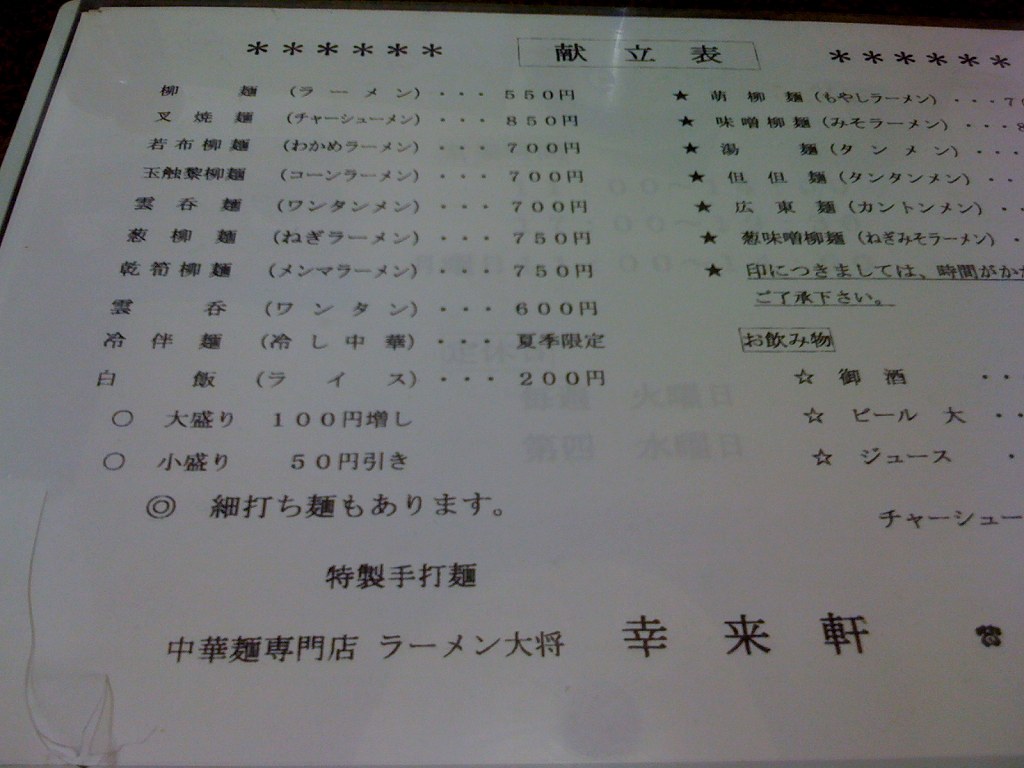 ＊＊＊＊＊＊ 献立表 ＊＊＊＊＊＊
柳麺 (ラーメン)・・・５５０円
叉焼麺 (チャーシューメン)・・・８５０円
若布柳麺 (わかめラーメン)・・・７００円
玉触黎柳麺 (コーンラーメン)・・・７００円
雲呑麺 (ワンタンメン)・・・７００円
葱柳麺 (ねぎラーメン)・・・７５０円
乾筍柳麺 (メンマラーメン)・・・７５０円
雲呑 (ワンタン)・・・６００円
冷伴麺 (冷し中華)・・・夏季限定
白飯 (ライス)・・・２００円
○ 大盛り １００円増し
○ 小盛り ５０円引き
◎ 細打ち麺もあります。
★ 萌柳麺 (もやしラーメン)・・・
★ 味噌柳麺 (みそラーメン)・・・
★ 湯麺 (タンメン)・・・
★ 但但麺 (タンタンメン)・・
★ 広東麺 (カントンメン)・・
★ 葱味噌柳麺 (ねぎみそラーメン)・
★ 印につきましては、時間がか
ご了承下さい。
お飲み物
☆ 御酒 ・・
☆ ビール 大 ・・
☆ ジュース ・
チャーシュー
特製手打麺
中華麺専門店 ラーメン大将 幸来軒 ☎
定休日
毎週 火曜日
第四 水曜日